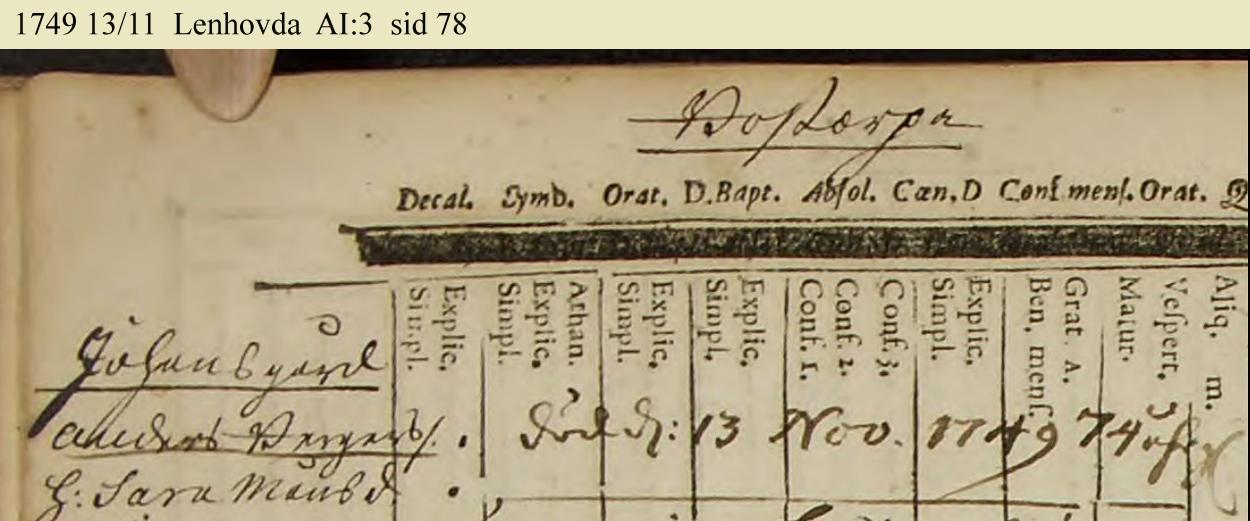 1749 13/11 Lenhovda AI:3 sid 78
Boskorpa
Decal. Symb. Orat. D.Bapt. Absol. Cœn.D Conf. mens. Orat.
Simpl. Explic. Simpl. Explic. Athan. Simpl. Explic. Simpl. Explic. Conf. 1. Conf. 2. Conf. 3. Simpl. Explic. Ben. mens. Grat. A. Matut. Vespert. Aliq. m.
Johansgård
Anders Bergers/. död d: 13 Nov. 1749 74
h: Sara Månsd